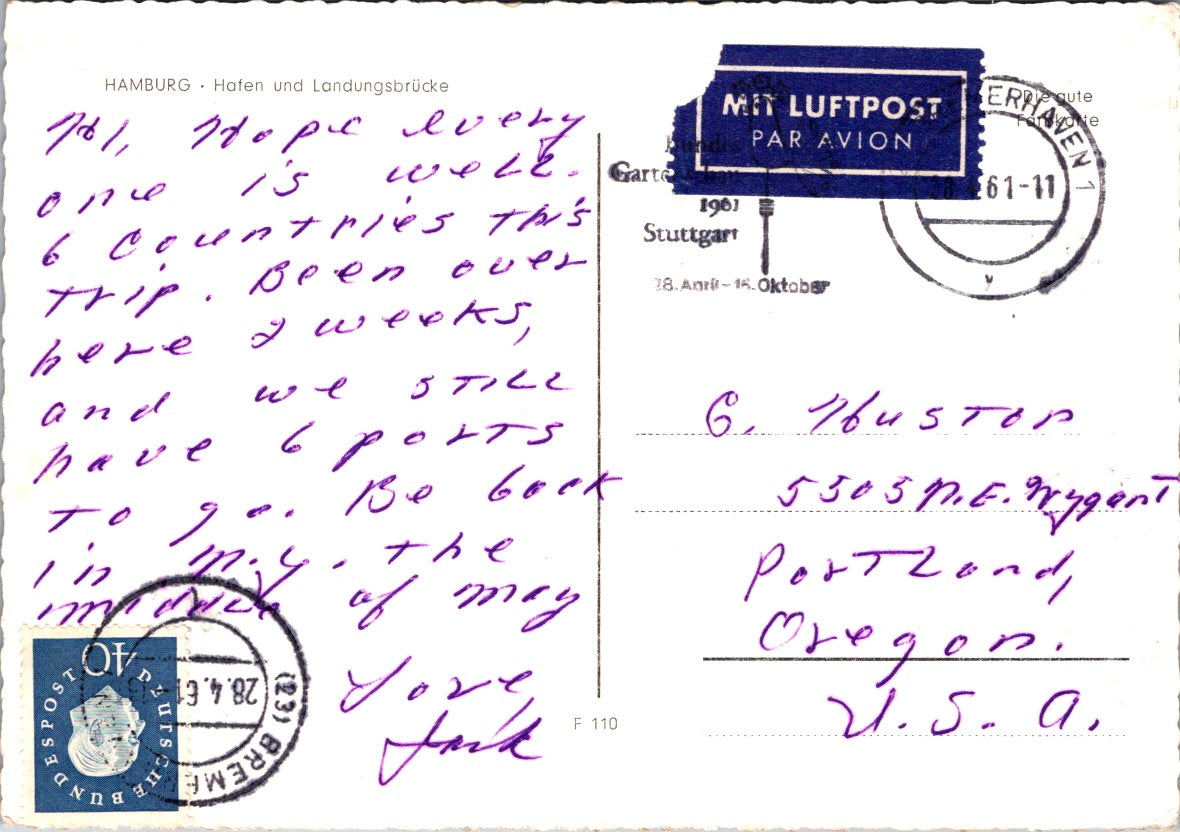 HAMBURG · Hafen und Landungsbrücke
Hi, Hope every
one is well.
6 Countries this
trip. Been over
here 2 weeks,
and we still
have 6 ports
to go. Be back
in N.Y. the
middle of may
Love,
Jack
MIT LUFTPOST
PAR AVION
Die gute
Farbkarte
ERHAVEN 1
61-11
y
Bundes
Gartenschau
1961
Stuttgart
28. April - 15. Oktober
G. Huston
5505 N.E. Wygant
Portland,
Oregon.
U.S.A.
F 110
40
DEUTSCHE BUNDESPOST
(23) BREME
28.4.61